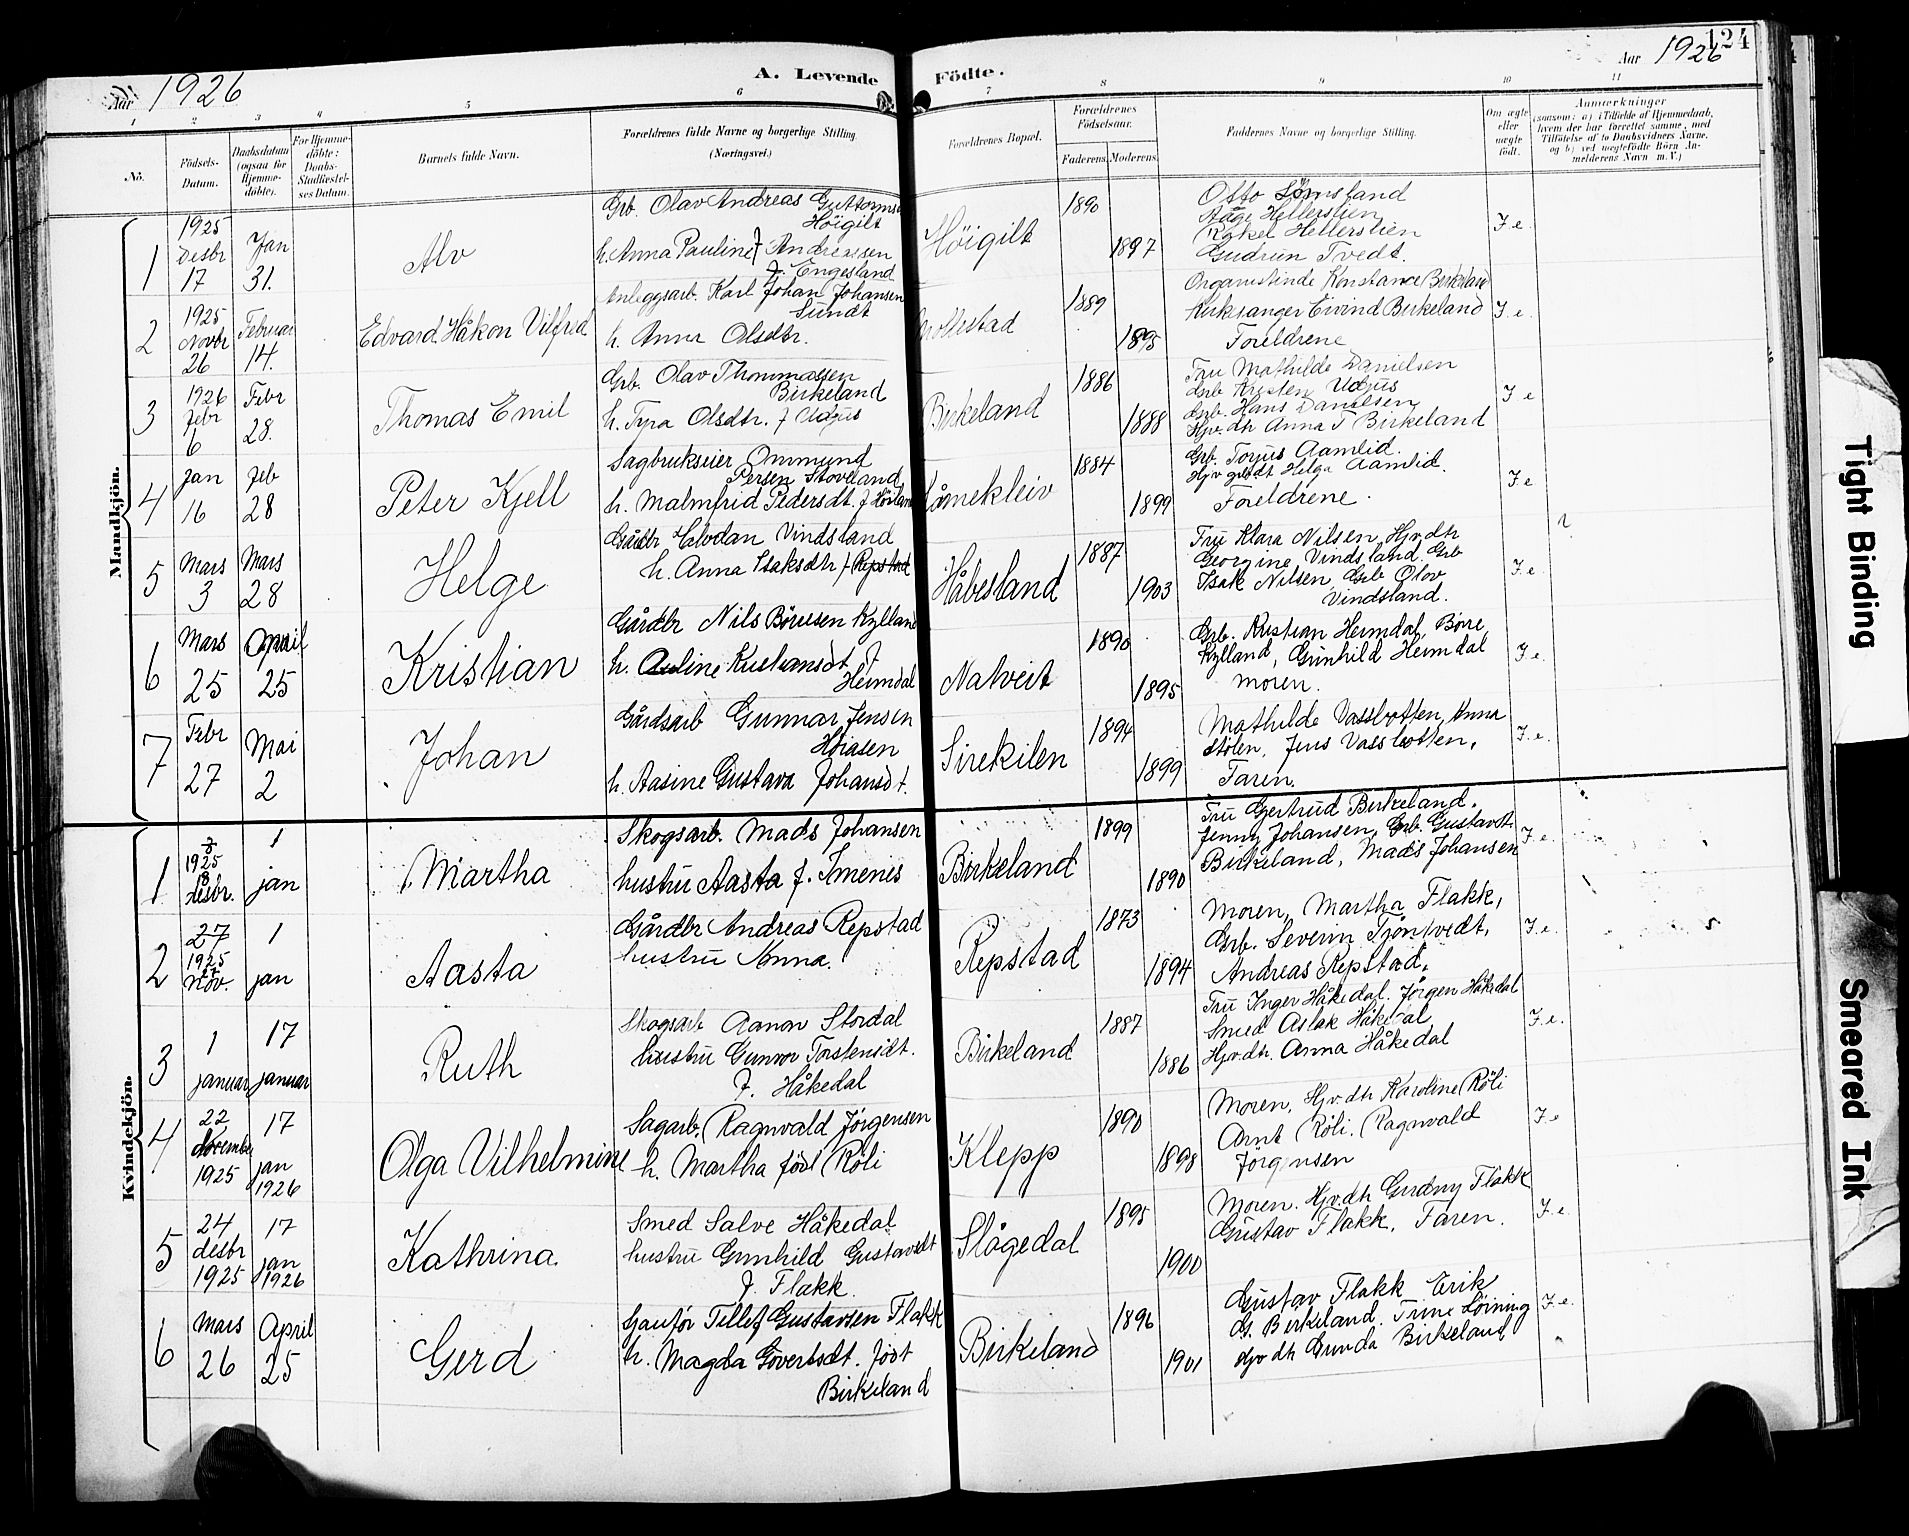 124
Aar 1926
A. Levende Födte.
Aar 1926
1 2 3 4 5 6 7 8 9 10 11
No.
Födsels-Datum.
Daabsdatum (ogsaa for Hjemmedöbte).
For Hjemmedöbte: Daabs-Stadfæstelses Datum.
Barnets fulde Navn.
Forældrenes fulde Navne og borgerlige Stilling. (Næringsvei.)
Forældrenes Bopæl.
Forældrenes Födselsaar.
Faderens. Moderens.
Faddernes Navne og borgerlige Stilling.
Om ægte eller uægte födt.
Anmærkninger
(saasom: a) i Tilfælde af Hjemmedaab, hvem der har forrettet samme, med Tilföielse af to Daabsvidners Navne, og b) ved uægtefödte Börn Anmelderens Navn m. V.)
Mandkjön.
1
1925 Desbr 17
Jan 31.
Alv
Grb. Olav Andreas Guttormsen
Höigilt
h. Anna Pauline Andreassen
f. Engesland
Höigilt
1890
1897
Otto Sömsland
Aage Hellerstien
Rakel Hellerstien
Gudrun Tvedt.
F.e.
2
1925 Novbr 26
Februar 14.
Edvard Håkon Vilfred
Anleggsarb. Karl Johan Johansen
Sundt
h. Anna Olsdtr.
1889
1895
Organistinde Konstance Birkeland
Kirksanger Eivind Birkeland
Foreldrene
F.e.
3
1926 Febr 6
Febr 28.
Thomas Emil
Grb. Olav Thommassen
Birkeland
h. Tyra Olsdtr. f Udjus
Birkeland
1886
1888
Fru Mathilde Danielsen
Grb Kristen Udjus
Grb. Hans Danielsen
Hjv. dtr Anna T Birkeland
F.e
4
Jan 16
Feb 28
Peter Kjell
Sagbrukseier Ommund
Persen Stoveland
h. Malmfrid Pedersdt. f
Låmekleiv
1884
1899
Grb. Torjus Aamlid.
Hjv Helga Aamlid.
Foreldrene.
F.e
5
Mars 3
Mars 28
Helge
Gårdbr Halvdan Vindsland
h. Anna Isaksdtr f Repstad
Håbesland
1887
1903
Fru Klara Nilsen, Hjvdtr
Georgine Vindsland, Grb
Isak Nilsen, Grb Olov
Vindsland.
F.e.
6
Mars 25
April 25
Kristian
Gårdbr Nils Börresen Kylland
h. Auline Kristiansdt f
Heimdal
Natveit
1890
1895
Grb. Kristian Heimdal, Börre
Kylland, Gunhild Heimdal
moren.
F.e.
7
Febr 27
Mai 2
Johan
Gårdsarb Gunnar Jensen
Höiasen
h. Aasine Gustava Johansdt.
Sirekilen
1894
1899
Mathilde Vassbotten, Anna
Stölen, Jens Vassbotten,
Faren.
F.e.
Kvindekjön.
1
1925 8 desbr.
1 jan
Martha
Skogsarb. Mads Johansen
hustru Aasta f. Imenes
Birkeland
1899
1890
Fru Gjertrud Birkeland.
Jenny Johansen, Grb. Gustav
Birkeland, Mads Johansen
F.e.
2
27
1925 27 Nov.
1 jan
Aasta
Gårdbr Andreas Repstad
hustru Anna.
Repstad
1873
1894
Moren, Martha Flakk,
Grb. Severin Tjöntvedt,
Andreas Repstad.
F.e.
3
1 januar
17 januar
Ruth
Skogsarb Aanon Stordal
hustru Gunvor Torstensdt.
f. Håkedal
Birkeland
1887
1886
Fru Inger Håkedal. Jörgen Håkedal
Smed Aslak Håkedal
Hjvdtr. Anna Håkedal
F.e.
4
22 November 1925
17 jan 1926
Olga Vilhelmine
Sagarb. Ragnvald Jørgensen
h. Martha födt Röli
Klepp
1890
1898
Moren, Hjv.dtr Karoline Röli
Arnt Röli. Ragnvald
Jörgensen
F.e
5
24 desbr 1925
17 jan 1926
Kathrina.
Smed Salve Håkedal
hustru Gunhild Gustavsdt
f. Flakk.
Slågedal
1895
1900
Moren. Hjv.dtr Gudny Flakk
Gustav Flakk, Faren.
F.e.
6
Mars 26
April 25
Gerd
Tellef Gustavsen Flakk
h. Magda Govertsdt. födt
Birkeland
Birkeland
1896
1901
Gustav Flakk Erik
G. Birkeland. Trine Löining
Hjv dtr Gunda Birkeland
F.e.
Tight Binding
Smeared Ink